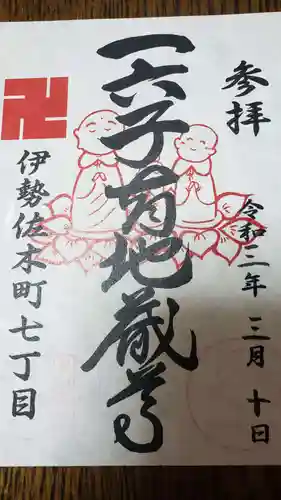 参拝
令和二年三月十日
一六子育地蔵尊
卍
伊勢佐木町七丁目